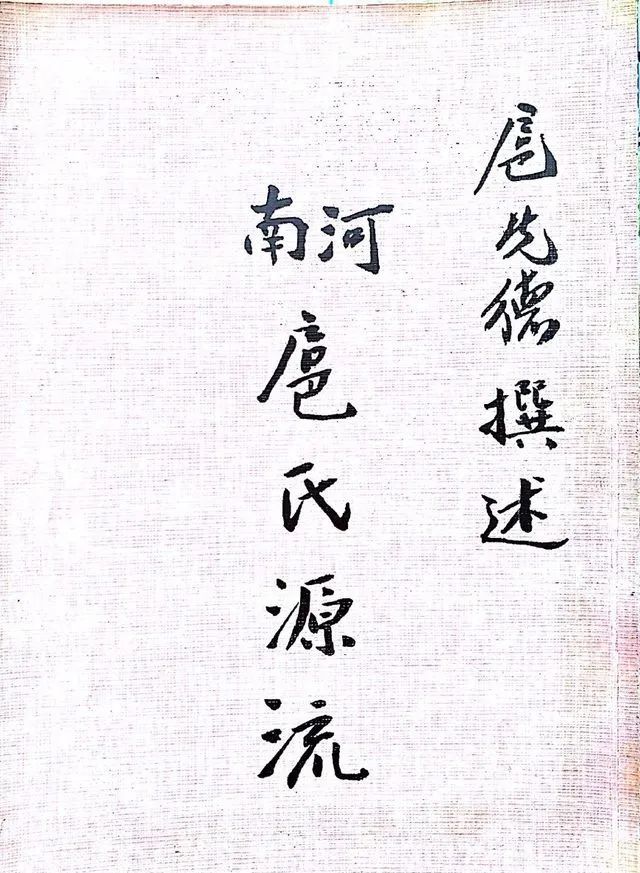 扈先德撰述
河南
扈氏源流